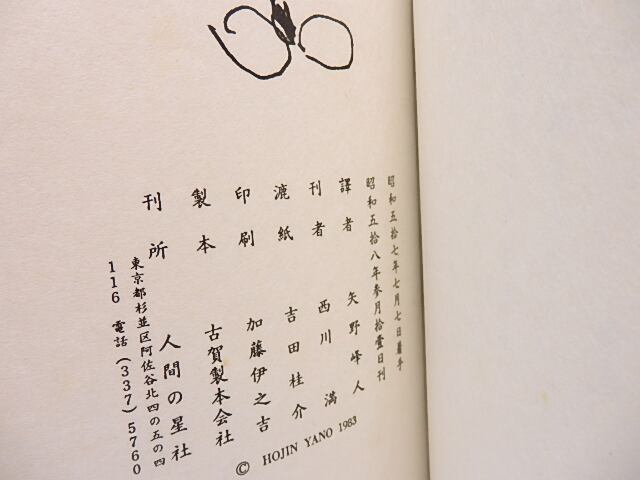 昭和五拾七年七月七日着手
昭和五拾八年参月拾壹日刊
譯者 矢野峰人
刊者 西川満
漉紙 吉田桂介
印刷 加藤伊之吉
製本 古賀製本会社
刊所 人間の星社
東京都杉並区阿佐谷北四の五の四
116 電話(337)5760
© HOJIN YANO 1983